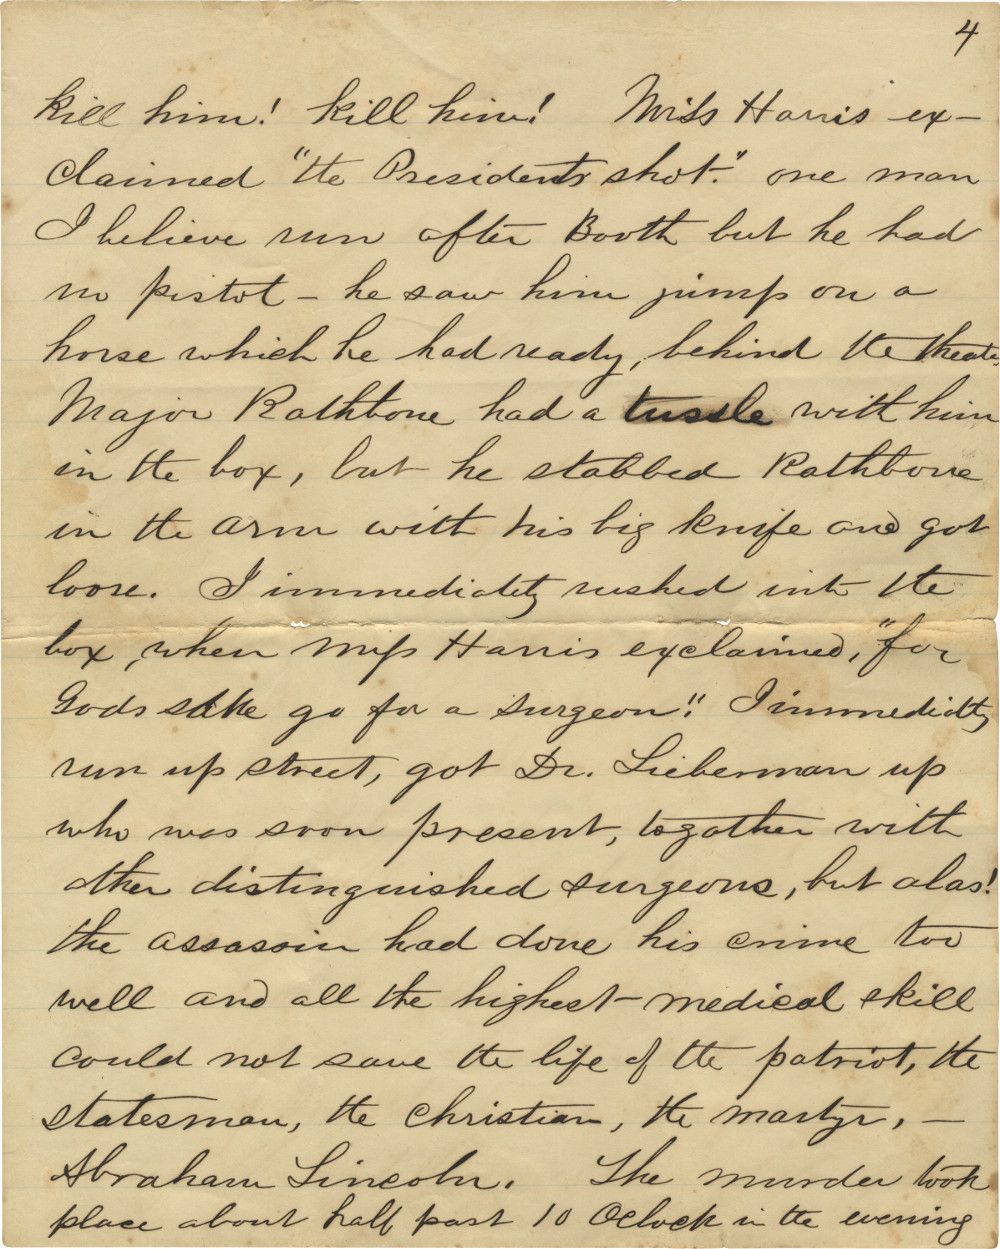 4
kill him! kill him! Miss Harris ex-
claimed "the Presidents shot." one man
I believe run after Booth but he had
no pistol - he saw him jump on a
horse which he had ready, behind the theatre,
Major Rathbone had a tussle with him
in the box, but he stabbed Rathbone
in the arm with his big knife and got
loose. I immediately rushed into the
box, when Miss Harris exclaimed, "for
Gods sake go for a surgeon". I immediately
run up street, got Dr. Lieberman up
who was soon present, together with
other distinguished surgeons, but alas!
the assassin had done his crime too
well and all the highest medical skill
could not save the life of the patriot, the
statesman, the christian, the martyr, -
Abraham Lincoln. The murder took
place about half past 10 Oclock in the evening